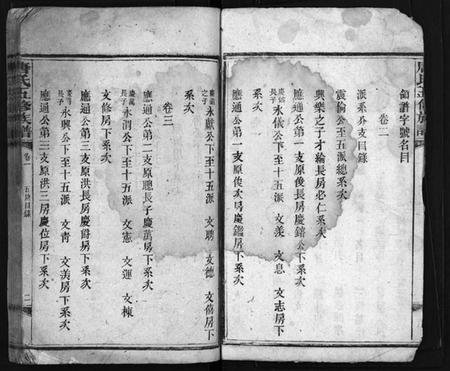 領譜字號名目
卷二
派系分支目錄
震倫公至五派總系次
興樂之子才綸長房必仁系次
應通公第一支原俊長房慶鎔公下系次
永儀公下至十五派 文美 文息 文志房下
系次
應通公第一支原俊次房慶鑑房下系次
之子 永獻公下至十五派 文聘 文德 文僖房下
系次
卷三
應通公第二支原聰長子慶萬房下系次
慶萬長子 永渭公下至十五派 文憲 文運 文棟
文修房下系次
應通公第三支原洪長房慶爵房下系次
慶爵長子 永興公下至十五派 文青 文美房下系次
應通公第三支原洪三房慶位房下系次
唐氏五修族譜
卷一
五修目錄
二